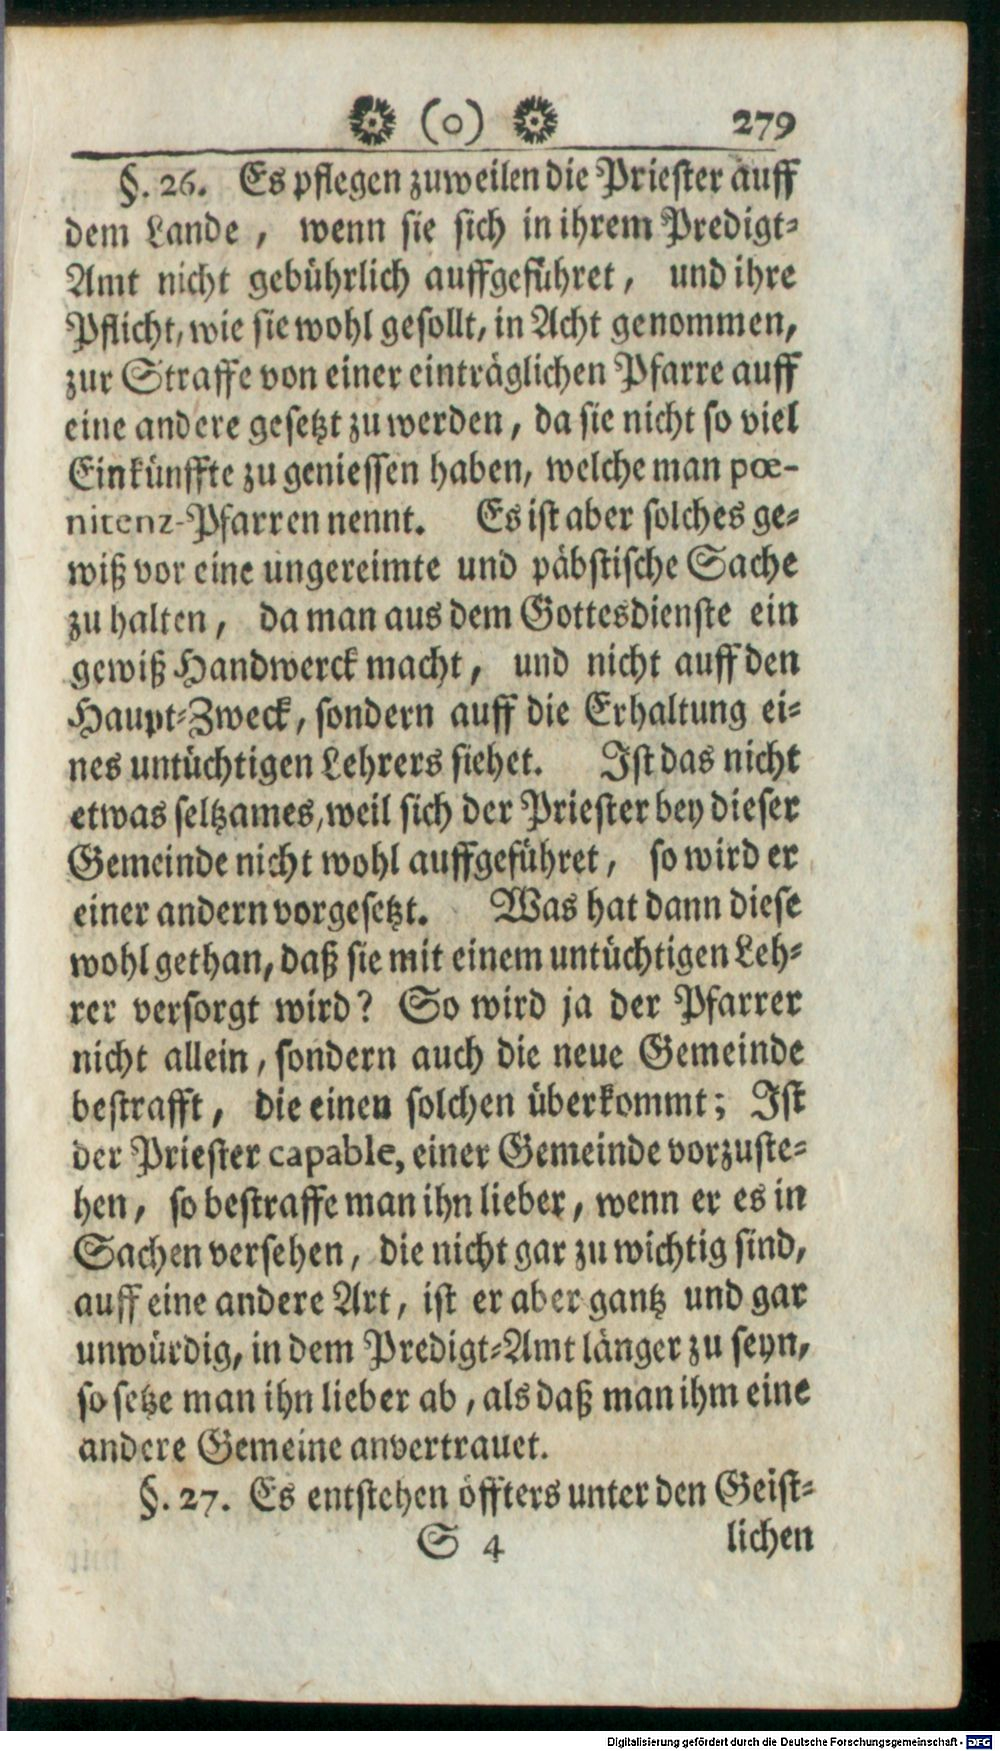 (o) 279
§. 26. Es pflegen zuweilen die Priester auff
dem Lande, wenn sie sich in ihrem Predigt-
Amt nicht gebührlich auffgeführet, und ihre
Pflicht, wie sie wohl gesollt, in Acht genommen,
zur Straffe von einer einträglichen Pfarre auff
eine andere gesetzt zu werden, da sie nicht so viel
Einkünffte zu geniessen haben, welche man pœ-
nitenz-Pfarren nennt. Es ist aber solches ge-
wiß vor eine ungereimte und päbstische Sache
zu halten, da man aus dem Gottesdienste ein
gewiß Handwerck macht, und nicht auff den
Haupt-Zweck, sondern auff die Erhaltung ei-
nes untüchtigen Lehrers siehet. Ist das nicht
etwas seltzames, weil sich der Priester bey dieser
Gemeinde nicht wohl auffgeführet, so wird er
einer andern vorgesetzt. Was hat dann diese
wohl gethan, daß sie mit einem untüchtigen Leh-
rer versorgt wird? So wird ja der Pfarrer
nicht allein, sondern auch die neue Gemeinde
bestrafft, die einen solchen überkommt; Ist
der Priester capable, einer Gemeinde vorzuste-
hen, so bestraffe man ihn lieber, wenn er es in
Sachen versehen, die nicht gar zu wichtig sind,
auff eine andere Art, ist er aber gantz und gar
unwürdig, in dem Predigt-Amt länger zu seyn,
so setze man ihn lieber ab, als daß man ihm eine
andere Gemeine anvertrauet.
§. 27. Es entstehen öffters unter den Geist-
S 4 lichen
Digitalisierung gefördert durch die Deutsche Forschungsgemeinschaft - DFG